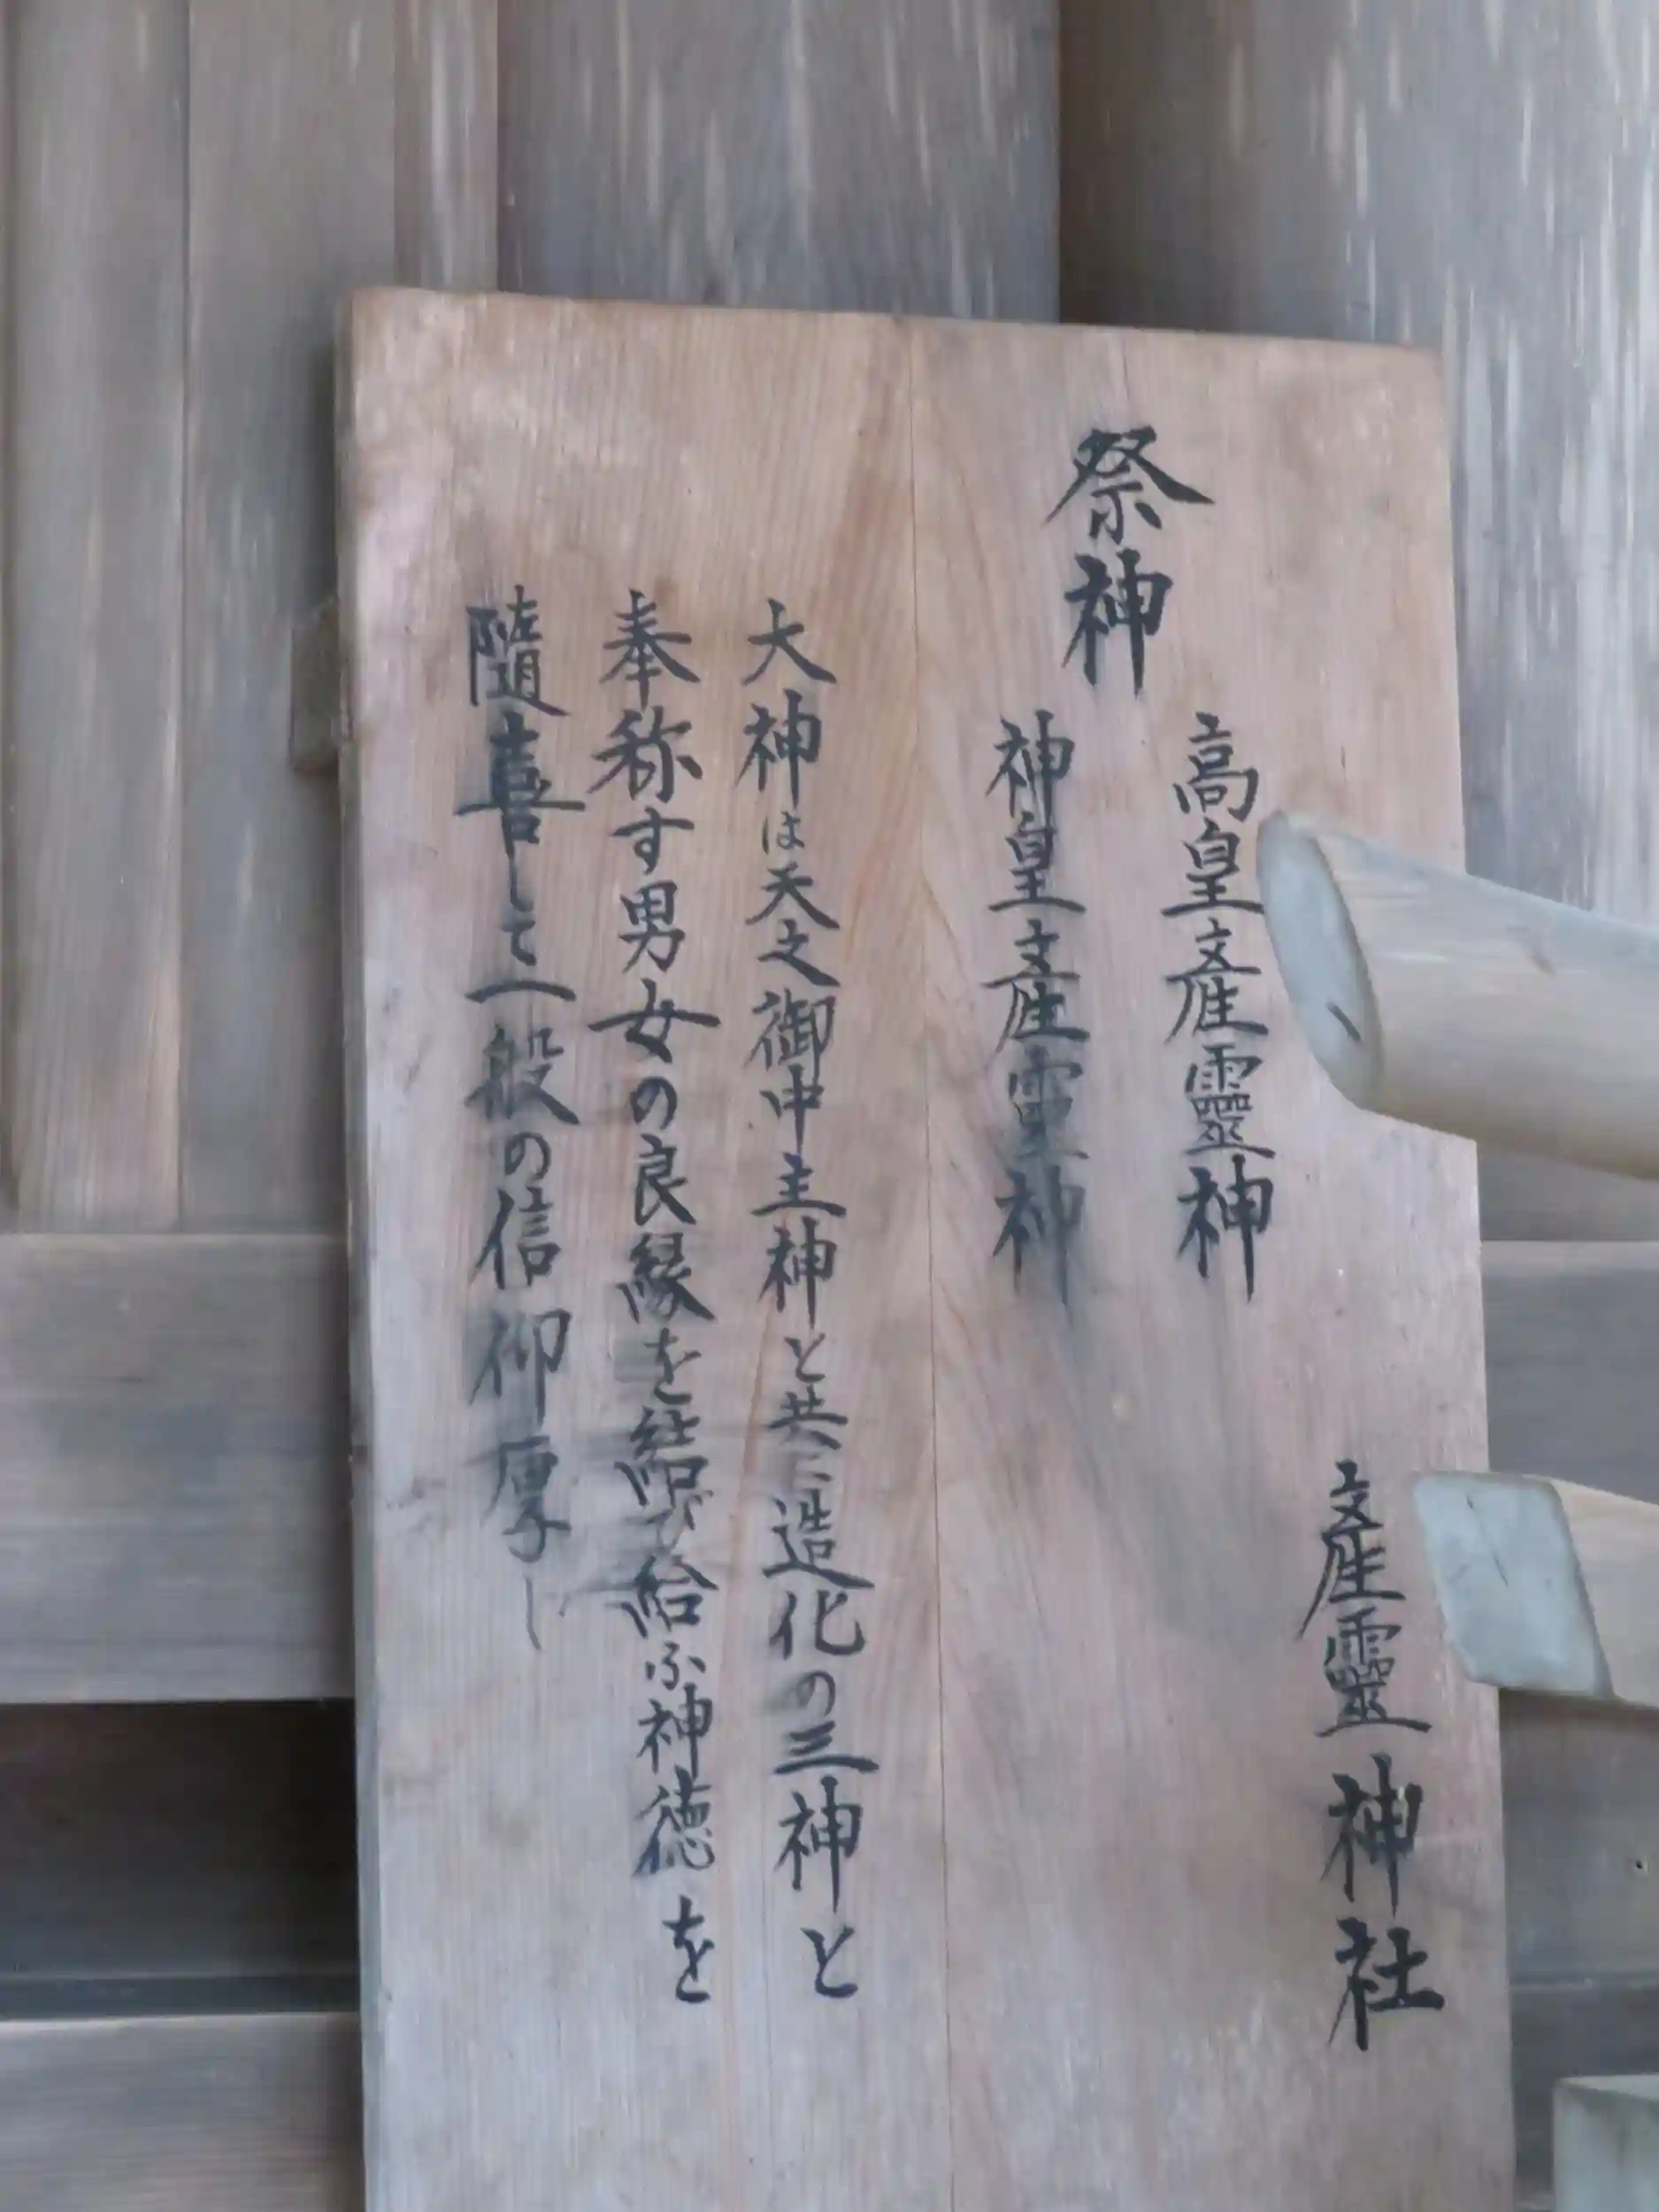 産靈神社
祭神
高皇産靈神
神皇産霊神
大神は天之御中主神と共に造化の三神と
奉称す男女の良縁を結び給ふ神徳を
隨喜して一般の信仰厚し